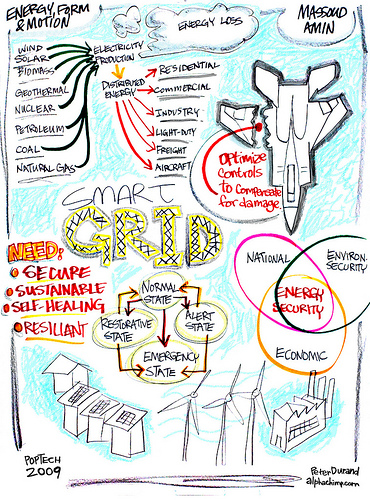 ENERGY, FORM
& MOTION
ENERGY LOSS
MASSOUD
AMIN
WIND
SOLAR
BIOMASS
GEOTHERMAL
NUCLEAR
PETROLEUM
COAL
NATURAL GAS
ELECTRICITY
PRODUCTION
DISTRIBUTED
ENERGY
RESIDENTIAL
COMMERCIAL
INDUSTRY
LIGHT-DUTY
FREIGHT
AIRCRAFT
OPTIMIZE
CONTROLS
TO COMPENSATE
FOR DAMAGE
SMART
GRID
NEED:
SECURE
SUSTAINABLE
SELF-HEALING
RESILIANT
NORMAL
STATE
RESTORATIVE
STATE
ALERT
STATE
EMERGENCY
STATE
NATIONAL
ENVIRON.
SECURITY
ENERGY
SECURITY
ECONOMIC
POPTECH
2009
PETER DURAND
alphachimp.com